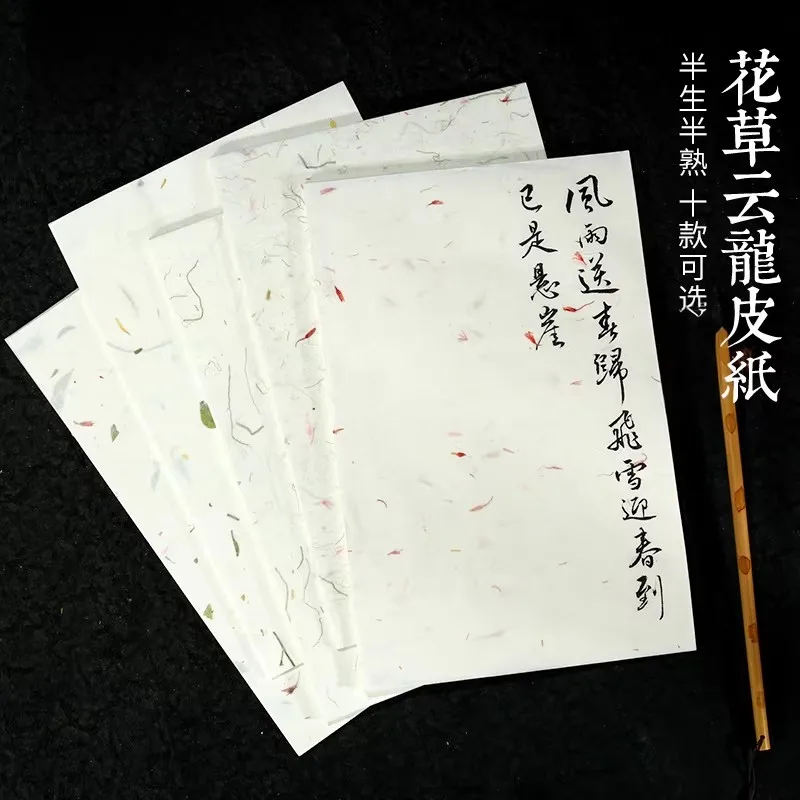 花草云龍皮紙
半生半熟 十款可选
風雨送春歸飛雪迎春到
已是悬崖